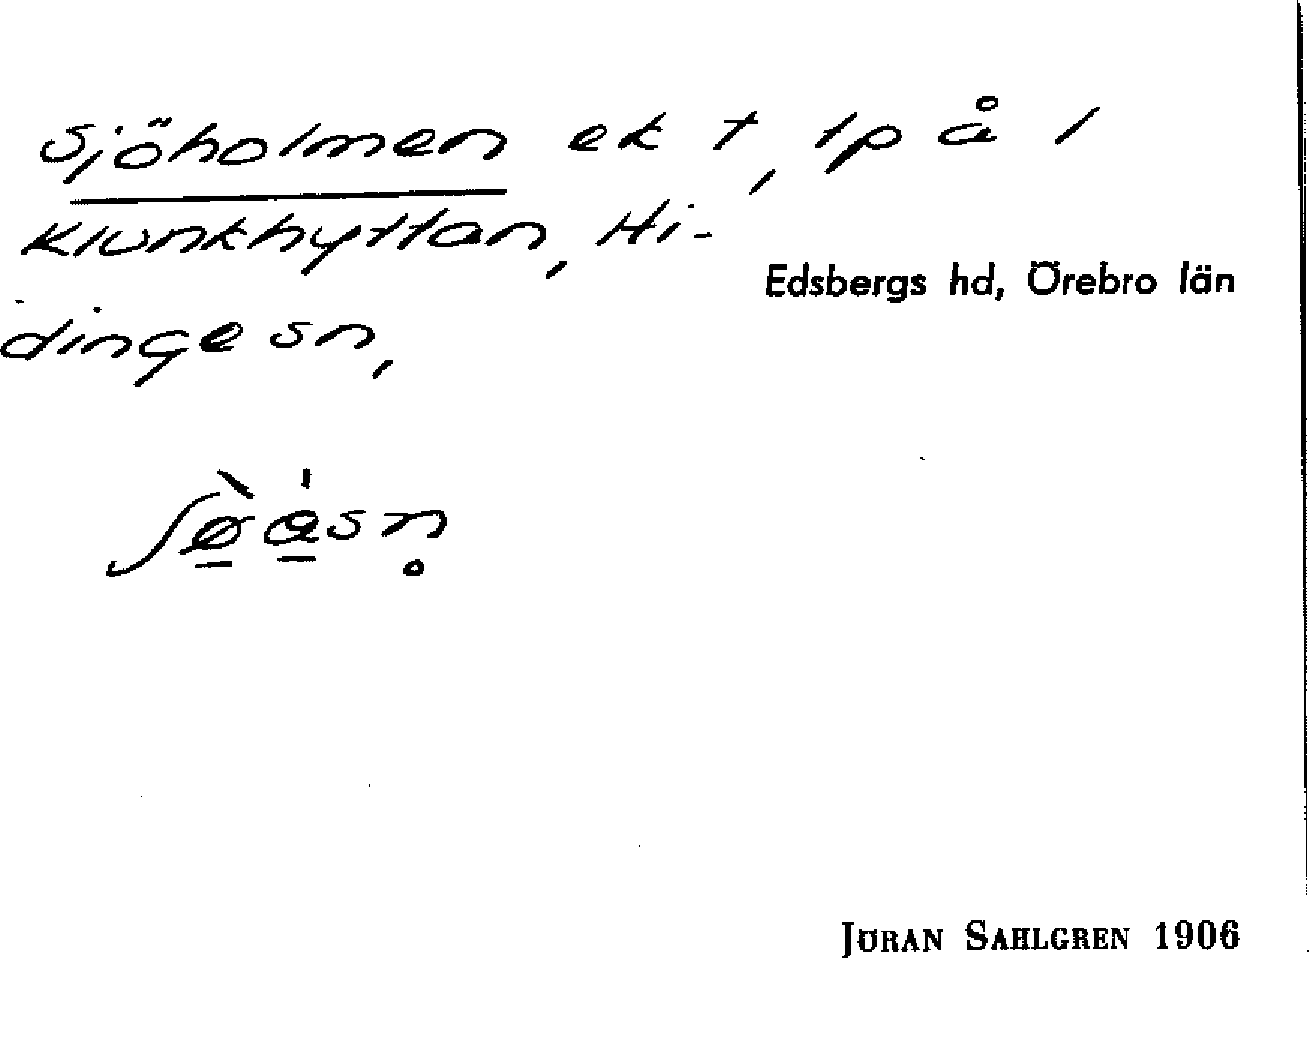 Sjöholmen ek t, tp å 1
Klunkhyttan, Hi-
Edsbergs hd, Örebro län
dinge sn,
JÖRAN SAHLGREN 1906